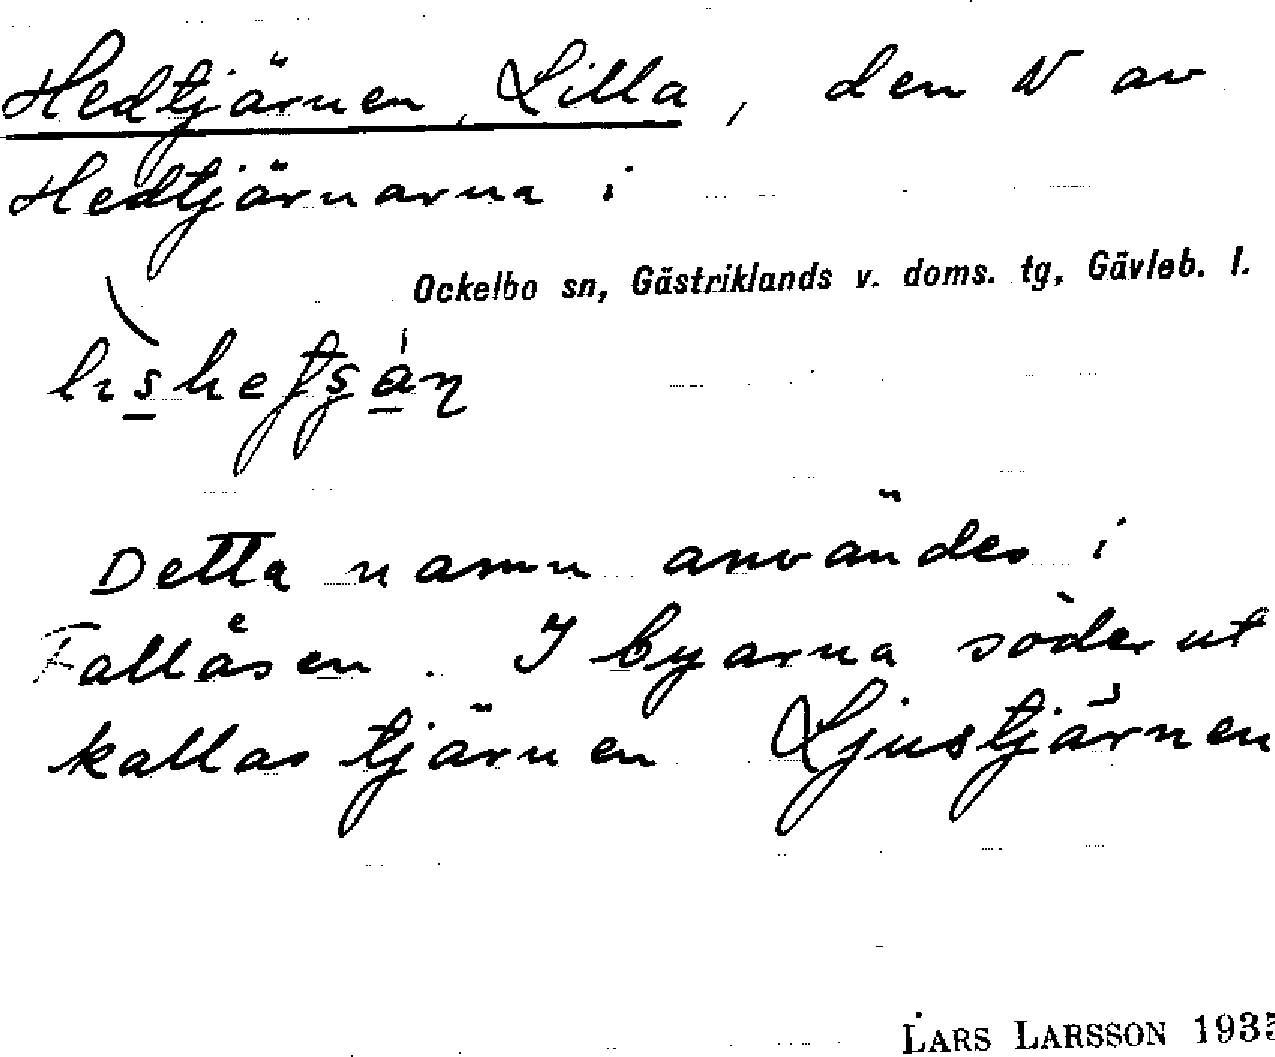 Hedtjärnen, Lilla, den N av
Hedtjärnarna i
Ockelbo sn, Gästriklands v. doms. tg, Gävleb. l.
Detta namn användes i
Fallåsen. I byarna söderut
kallas tjärnen Ljustjärnen
LARS LARSSON 1935